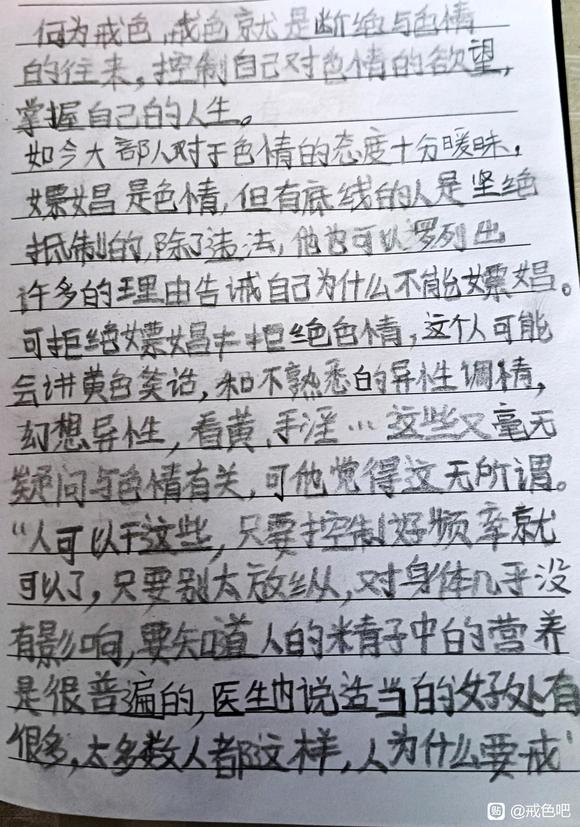 何为戒色,戒色就是断绝与色情
的往来,控制自己对色情的欲望,
掌握自己的人生。
如今大部人对于色情的态度十分暧昧,
嫖娼是色情,但有底线的人是坚绝
抵制的,除了违法,他也可以罗列出
许多的理由告诫自己为什么不能嫖娼。
可拒绝嫖娼≠拒绝色情,这个人可能
会讲黄色笑话,和不熟悉的异性调情,
幻想异性,看黄,手淫…这些又毫无
疑问与色情有关,可他觉得这无所谓。
“人可以干这些,只要控制好频率就
可以了,只要别太放纵,对身体几乎没
有影响,要知道人的精子中的营养
是很普遍的,医生也说适当的好处有
很多,大多数人都这样,人为什么要戒
贴 @戒色吧